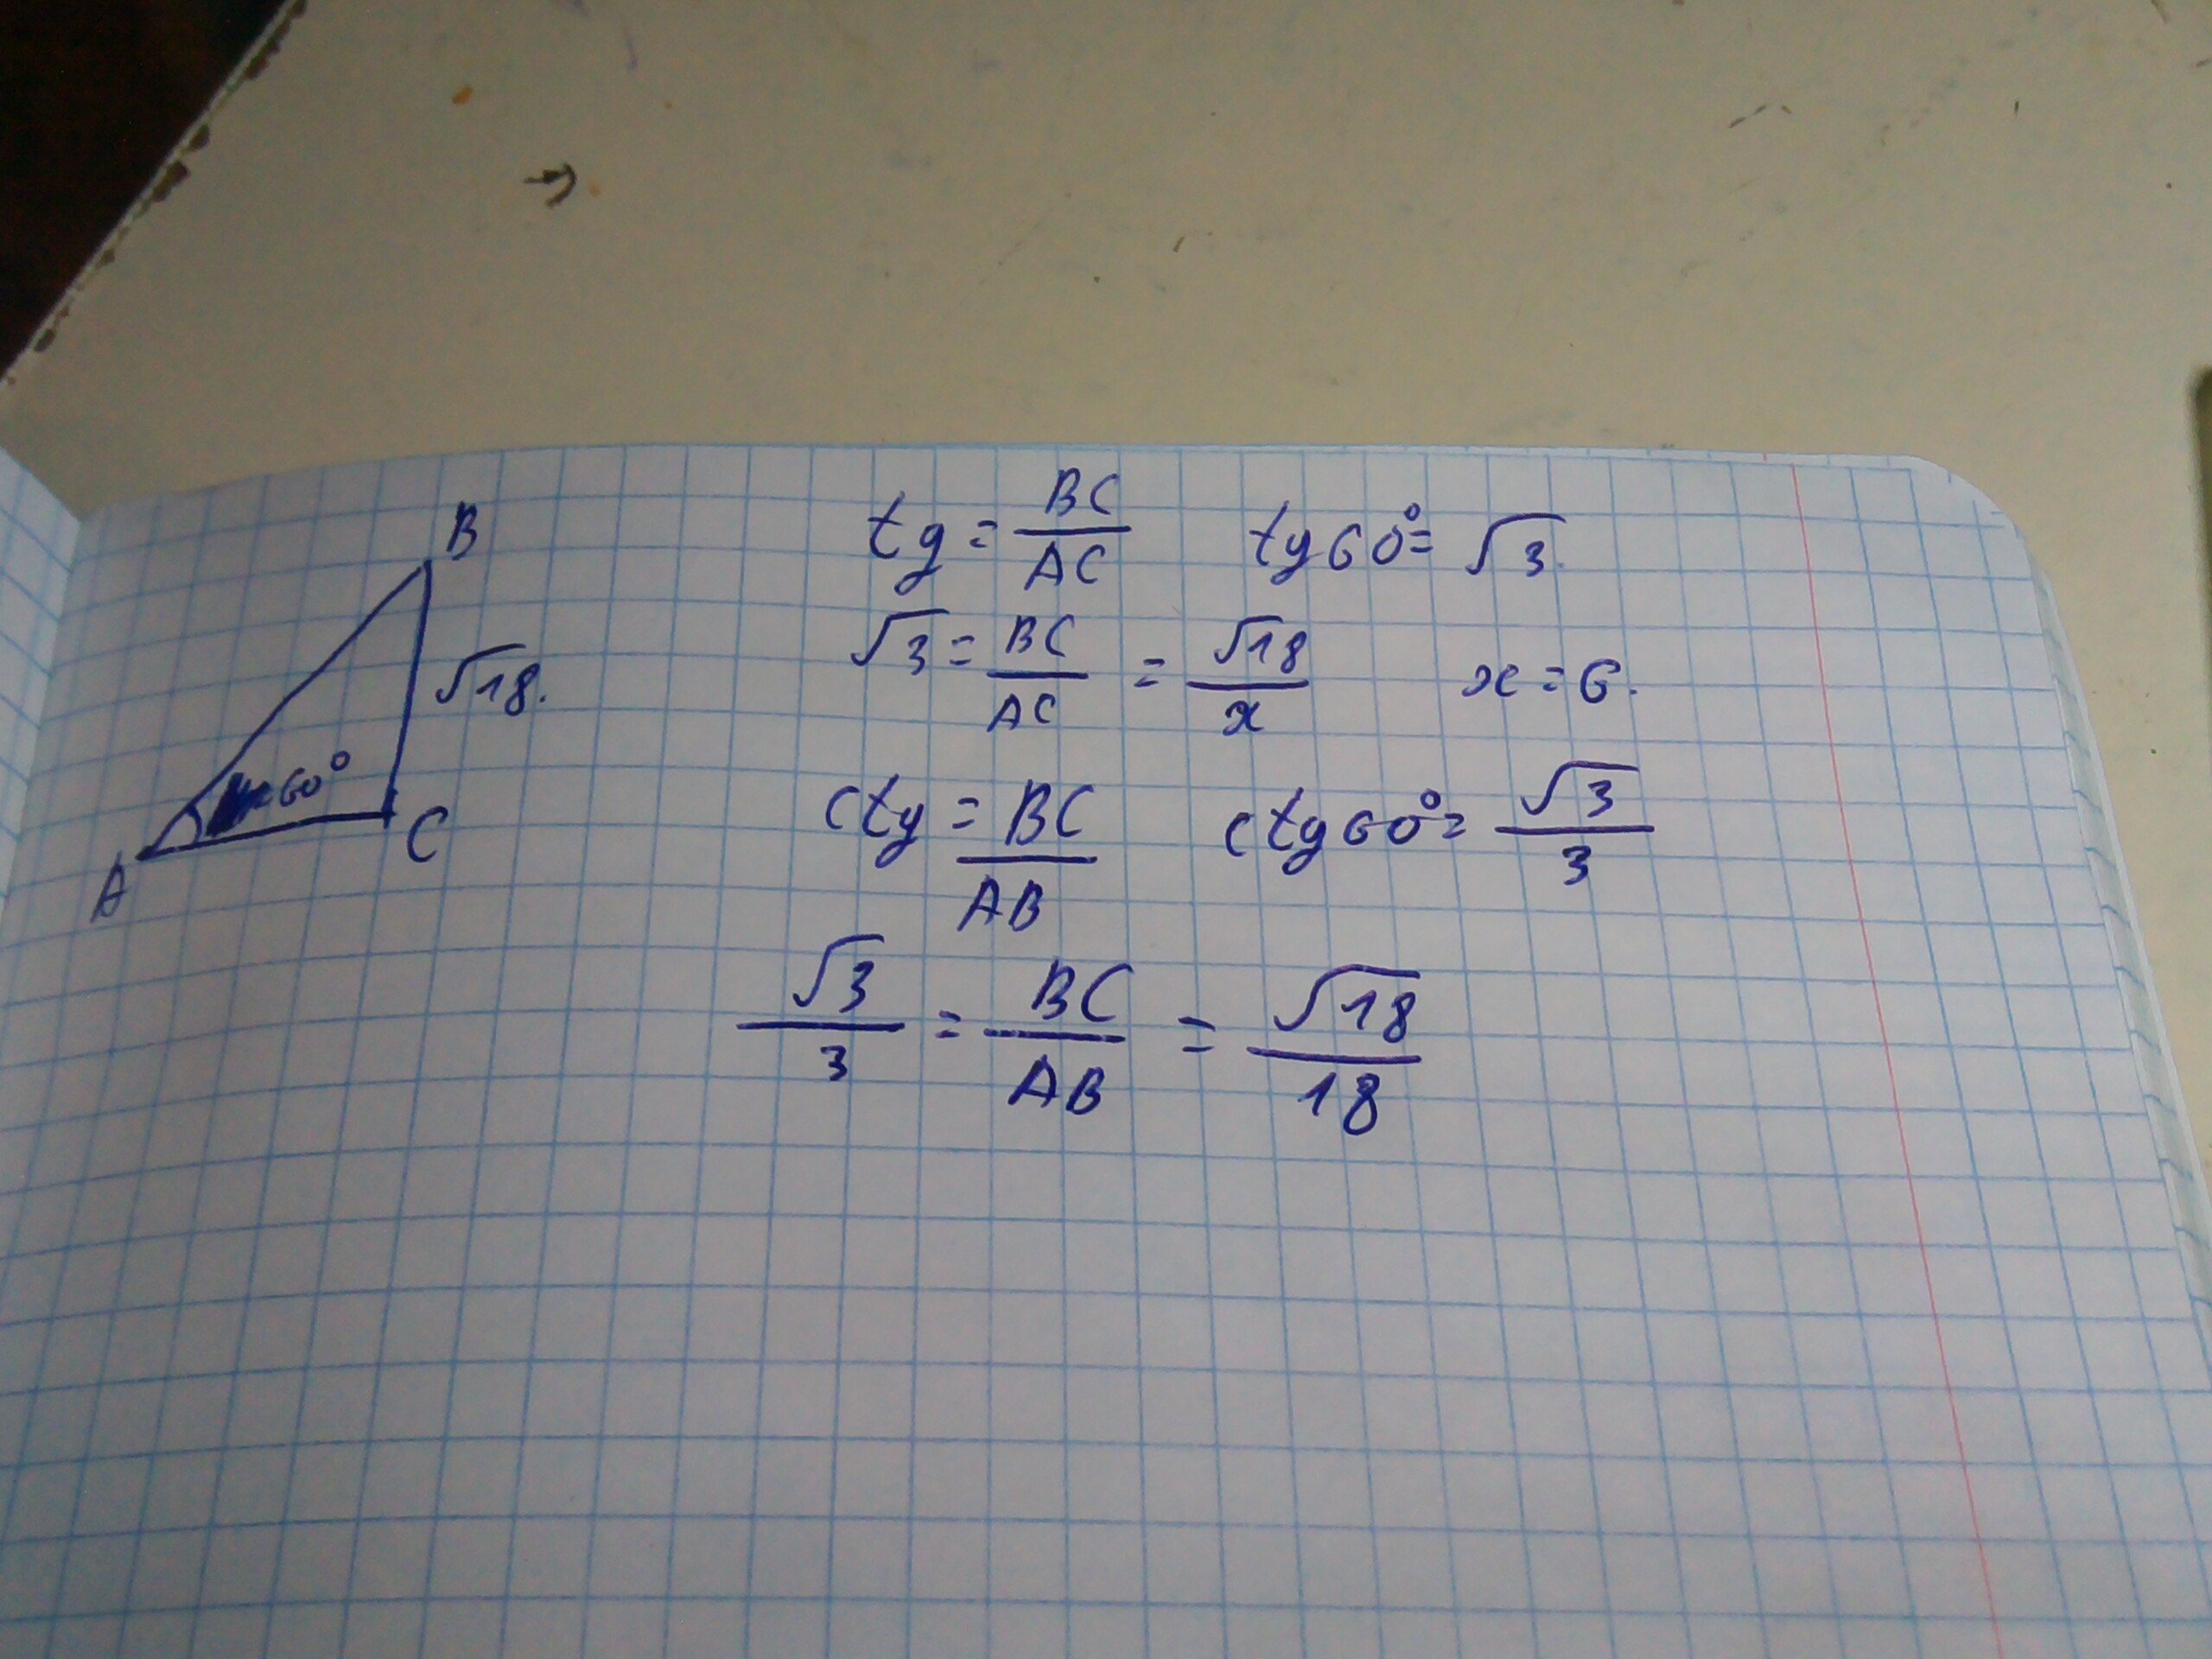 B
√18.
60°
A C
tg = BC/AC tg60°= √3.
√3 = BC/AC = √18/x x = 6.
ctg = BC/AB ctg60°= √3/3
√3/3 = BC/AB = √18/18